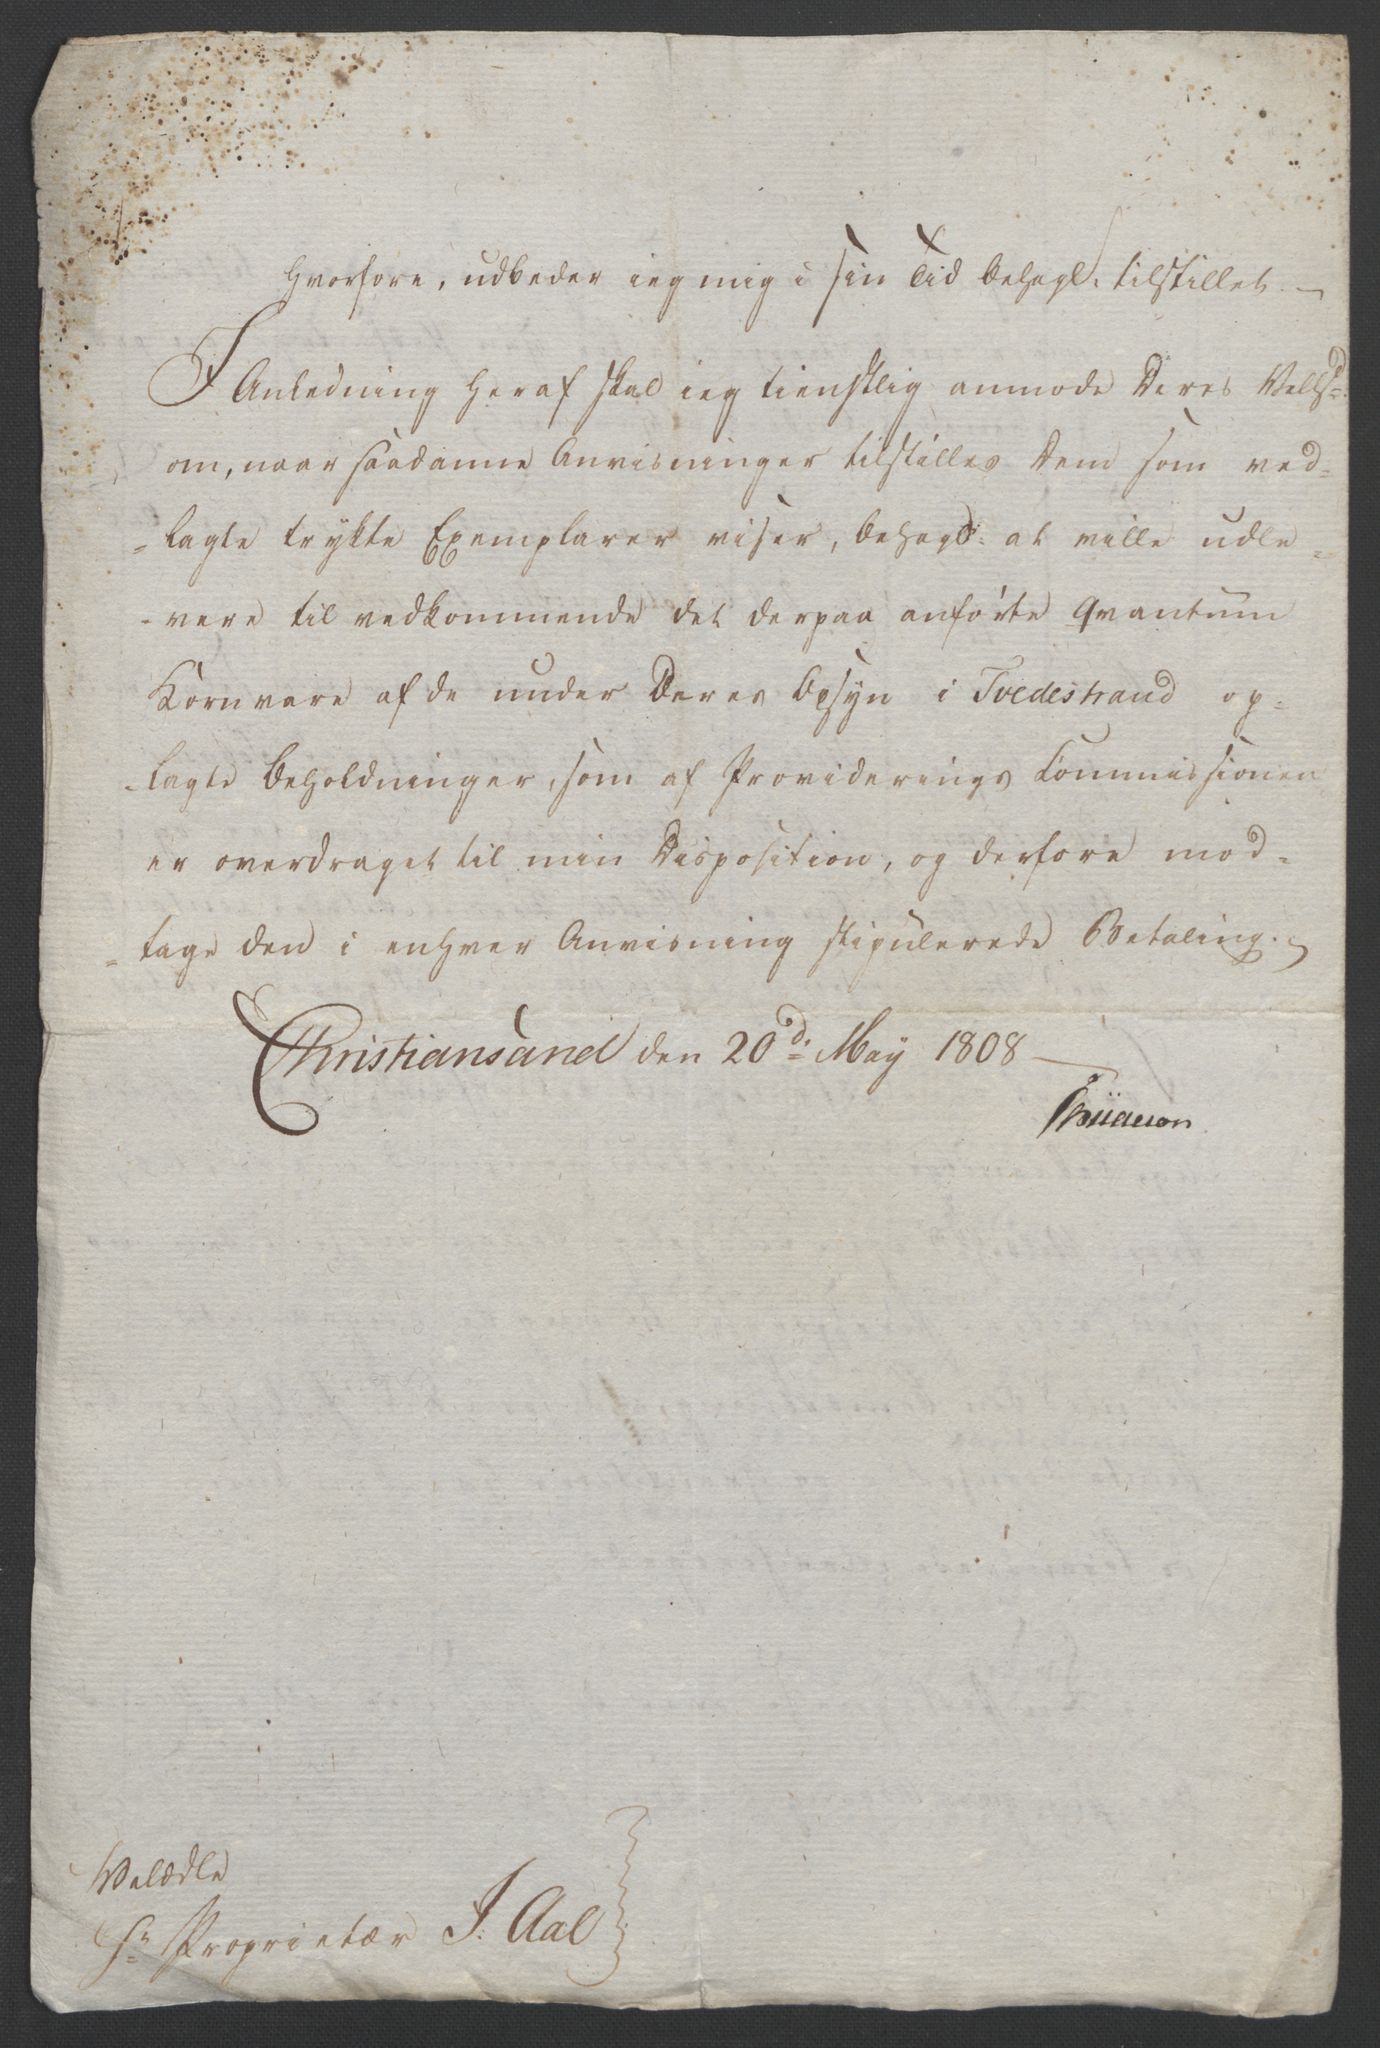 Hvorfore, udbeder ieg mig i sin Tid behagl. tilstillet. —
I Anledning heraf skal ieg tienstlig anmode Deres Velb.
om, naar saadanne Anvisninger tilstilles Dem som ved-
-lagte trykte Exemplarer viser, behagl: at ville udle-
-vere til vedkommende det derpaa anførte Qvantum
Kornvare af de under Deres Opsyn i Tvedestrand op-
-lagte Beholdninger, som af Providerings Commissionen
er overdraget til min Disposition, og derfore mod-
-tage den i enhver Anvisning stipulerede Betaling.
Christiansand den 20d. May 1808 —
Velædle
Hr. Proprietær J. Aal